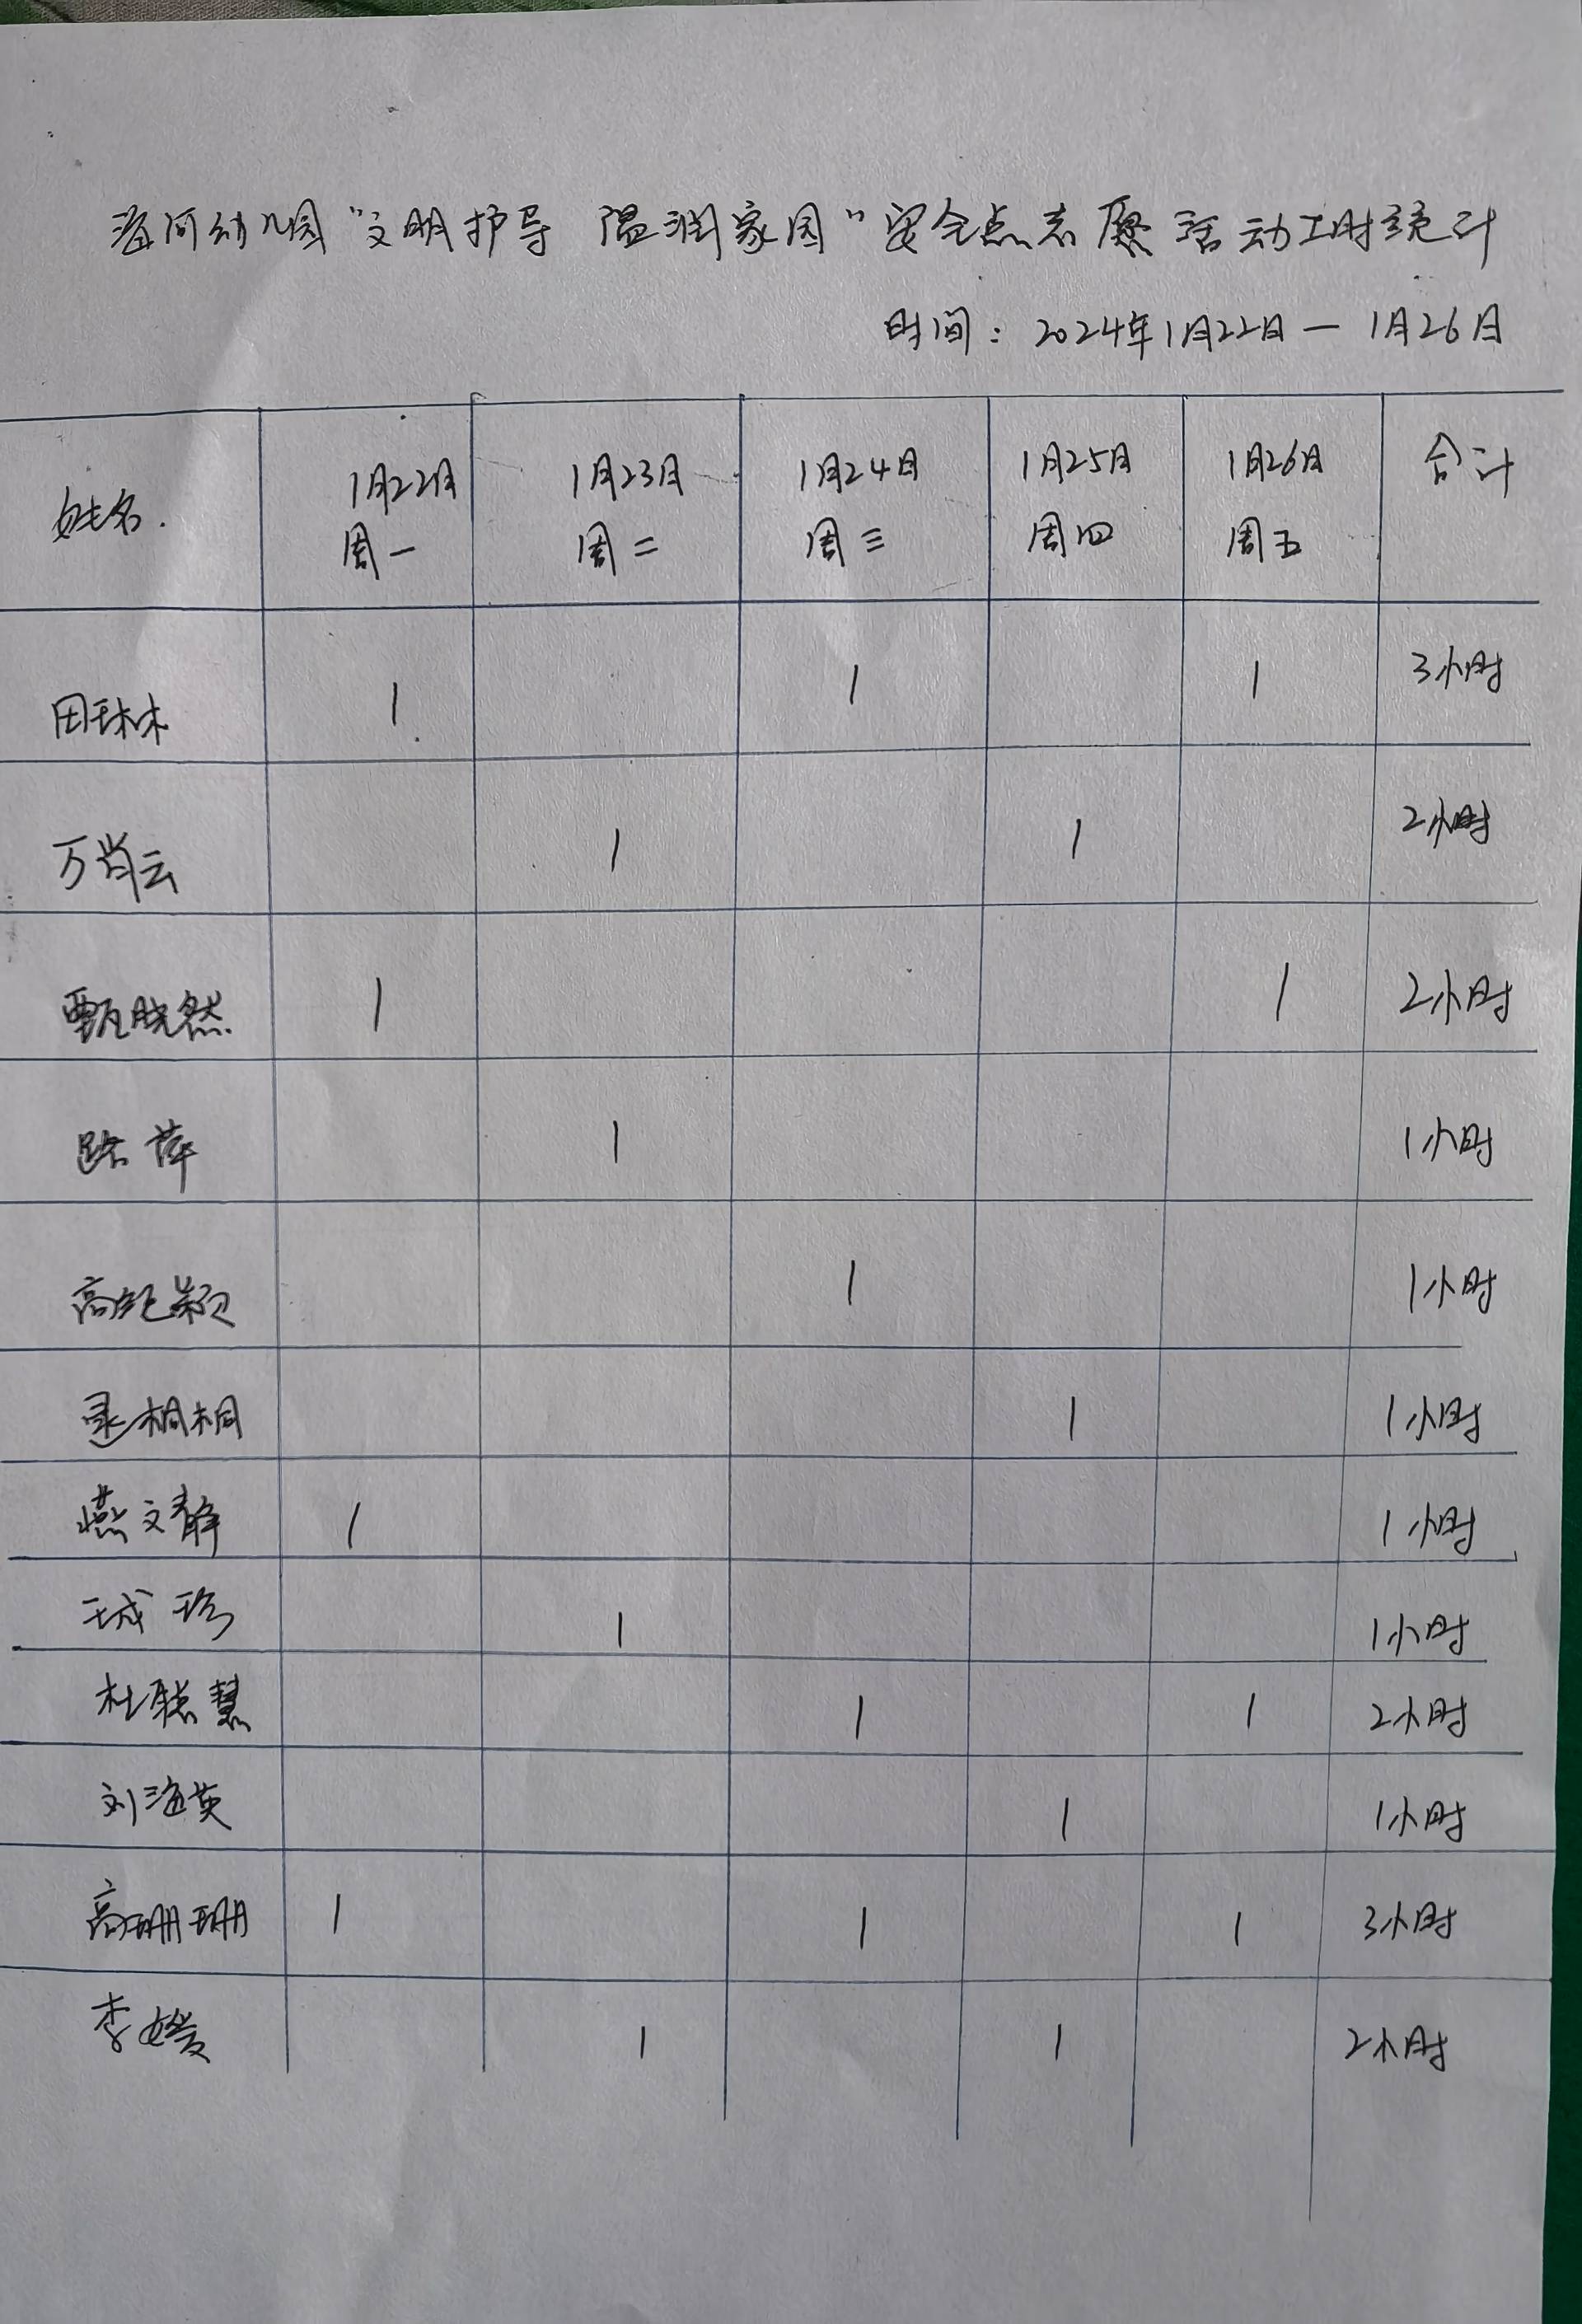 海河幼儿园“文明护导 温润家园”安全点志愿活动工时统计
时间：2024年1月22日—1月26日
姓名. 1月22日 周一 1月23日 周二 1月24日 周三 1月25日 周四 1月26日 周五 合计
田琳琳 1 1 1 3小时
万肖云 1 1 2小时
甄晓然 1 1 2小时
路萍 1 1小时
高艳颖 1 1小时
桐桐 1 1小时
燕文静 1 1小时
1 1小时
杜聪慧 1 1 2小时
刘海英 1 1小时
高珊珊 1 1 1 3小时
李媛 1 1 2小时